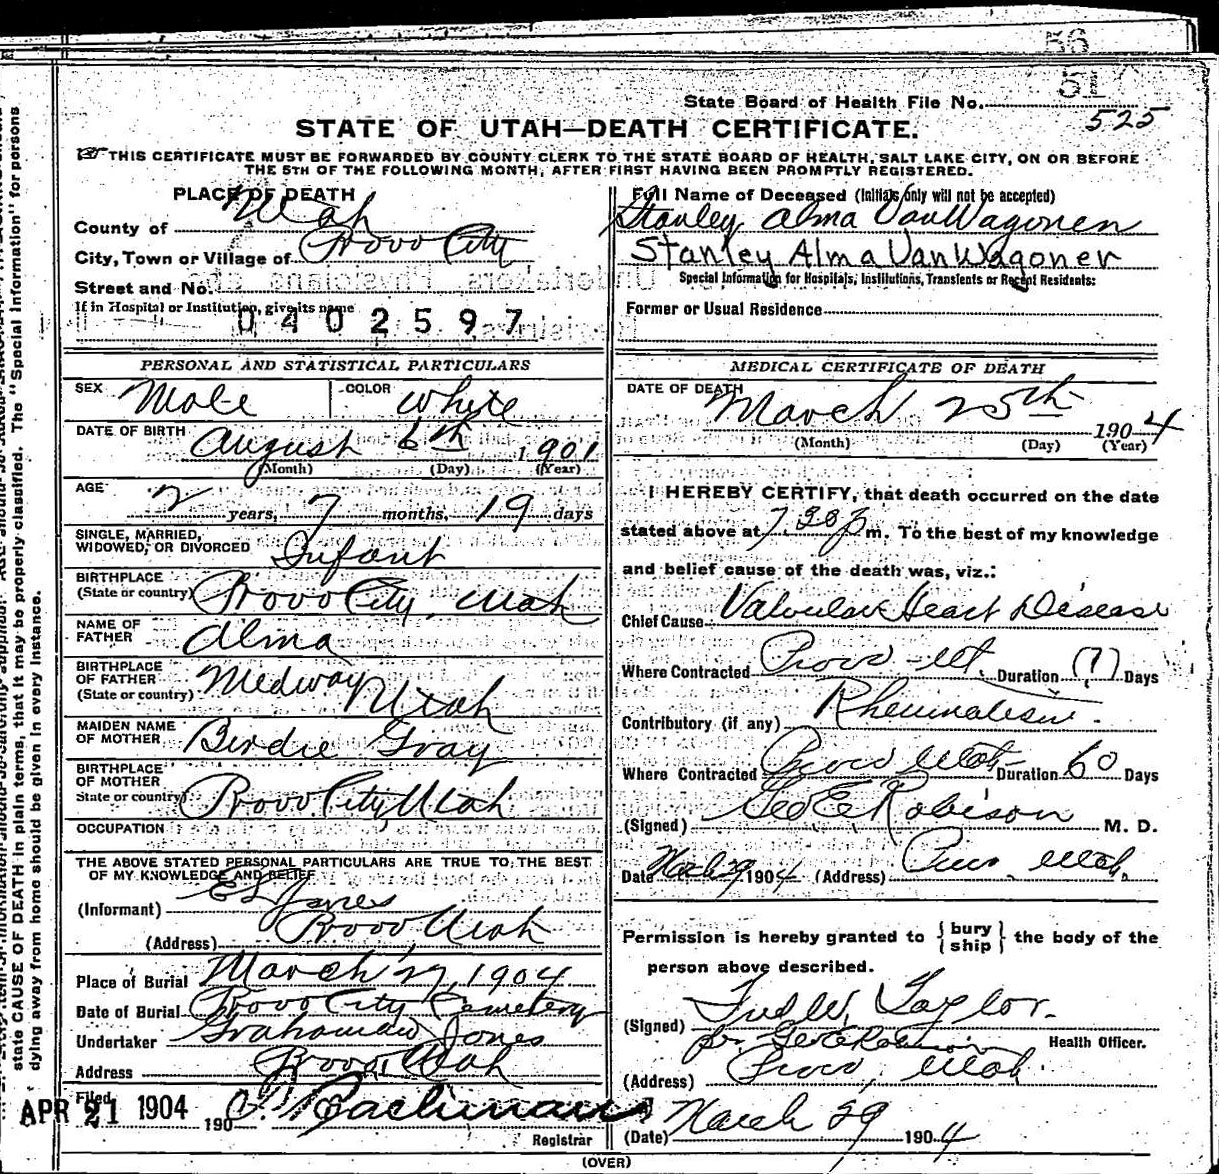 56
51
State Board of Health File No.
525
STATE OF UTAH—DEATH CERTIFICATE.
THIS CERTIFICATE MUST BE FORWARDED BY COUNTY CLERK TO THE STATE BOARD OF HEALTH, SALT LAKE CITY, ON OR BEFORE
THE 5TH OF THE FOLLOWING MONTH, AFTER FIRST HAVING BEEN PROMPTLY REGISTERED.
PLACE OF DEATH
County of Utah
City, Town or Village of Provo City
Street and No.
If in Hospital or Institution, give its name
0402597
PERSONAL AND STATISTICAL PARTICULARS
SEX Male COLOR White
DATE OF BIRTH August 6th 1901
(Month) (Day) (Year)
AGE 2 years, 7 months, 19 days
SINGLE, MARRIED,
WIDOWED, OR DIVORCED Infant
BIRTHPLACE
(State or country) Provo City, Utah
NAME OF
FATHER Alma
BIRTHPLACE
OF FATHER
(State or country) Medway Utah
MAIDEN NAME
OF MOTHER Birdie Gray
BIRTHPLACE
OF MOTHER
State or country) Provo City, Utah
OCCUPATION
THE ABOVE STATED PERSONAL PARTICULARS ARE TRUE TO THE BEST
OF MY KNOWLEDGE AND BELIEF
(Informant) E L Jones
(Address) Provo Utah
Place of Burial March 27, 1904
Date of Burial Provo City Cemetery
Undertaker Jones
Address Provo, Utah
Filed
APR 21 1904 190
Registrar
Full Name of Deceased (Initials only will not be accepted)
Stanley Alma VanWagonen
Stanley Alma VanWagoner
Special Information for Hospitals, Institutions, Transients or Recent Residents:
Former or Usual Residence
MEDICAL CERTIFICATE OF DEATH
DATE OF DEATH
March 25th 1904
(Month) (Day) (Year)
I HEREBY CERTIFY, that death occurred on the date
stated above at 7 30 p m. To the best of my knowledge
and belief cause of the death was, viz.:
Chief Cause Valvular Heart Disease
Where Contracted Provo Ut. Duration (?) Days
Contributory (if any) Rheumatism.
Where Contracted Provo Utah Duration 60 Days
(Signed) Geo E Robison M. D.
Date March 29 1904 (Address) Provo, Utah.
Permission is hereby granted to { bury ship } the body of the
person above described.
(Signed) Taylor.
for Geo E Robison Health Officer.
(Address) Provo, Utah.
(Date) March 29 1904
(OVER)
state CAUSE OF DEATH in plain terms, that it may be properly classified. The "Special Information" for persons
dying away from home should be given in every instance.